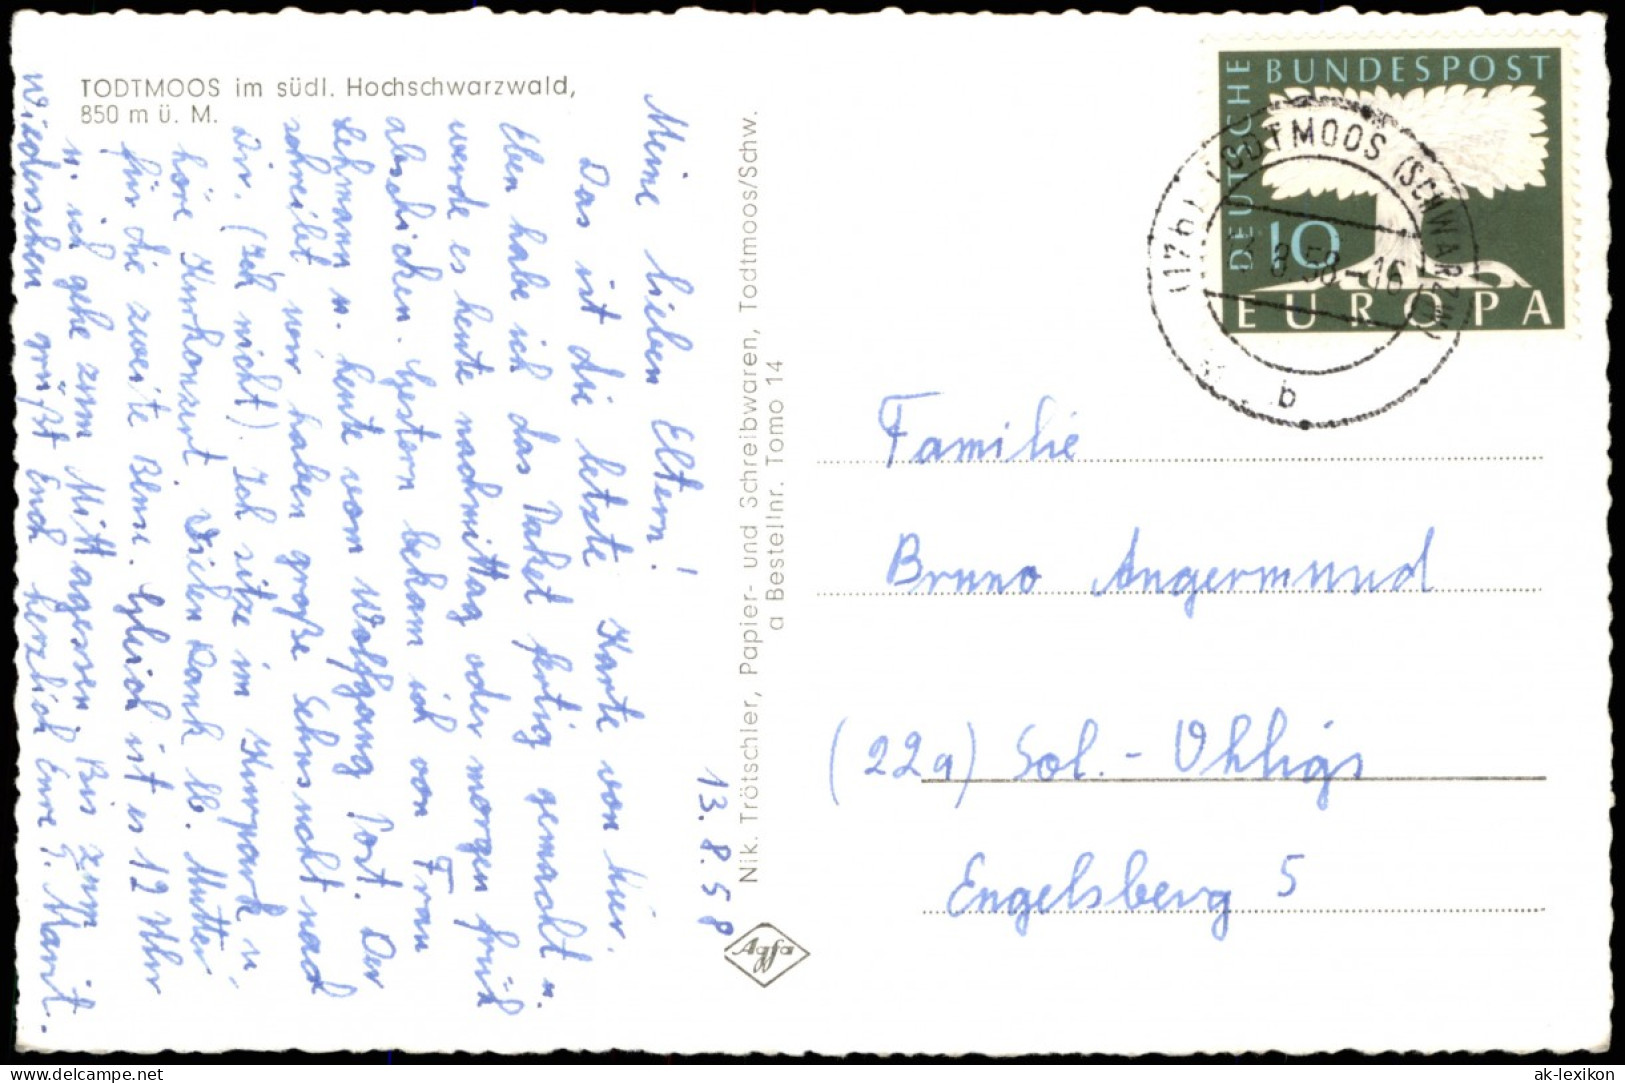 TODTMOOS im südl. Hochschwarzwald,
850 m ü. M.
13.8.58
Meine lieben Eltern!
Das ist die letzte Karte von hier.
Eben habe ich das Paket fertig gemacht u.
werde es heute nachmittag oder morgen früh
abschicken. Gestern bekam ich von Frau
Lehmann u. heute vom Wolfgang Post. Der
schreibt wir haben große Sehnsucht nach
Dir. (Ich nicht). Ich sitze im Kurpark u.
höre Kurkonzert. Vielen Dank lb. Mutter
für die zweite Bluse. Gleich ist es 12 Uhr
u. ich gehe zum Mittagessen. Bis zum
Wiedersehen grüßt Euch herzlich Eure
Nik. Trötschler, Papier- und Schreibwaren, Todtmoos/Schw.
a Bestellnr. Tomo 14
Agfa
DEUTSCHE BUNDESPOST
10
EUROPA
(17b) TODTMOOS (SCHWARZW)
8.58-16
b
Familie
Bruno Angermund
(22a) Sol.-Ohligs
Engelsberg 5
delcampe.net
ak-lexikon